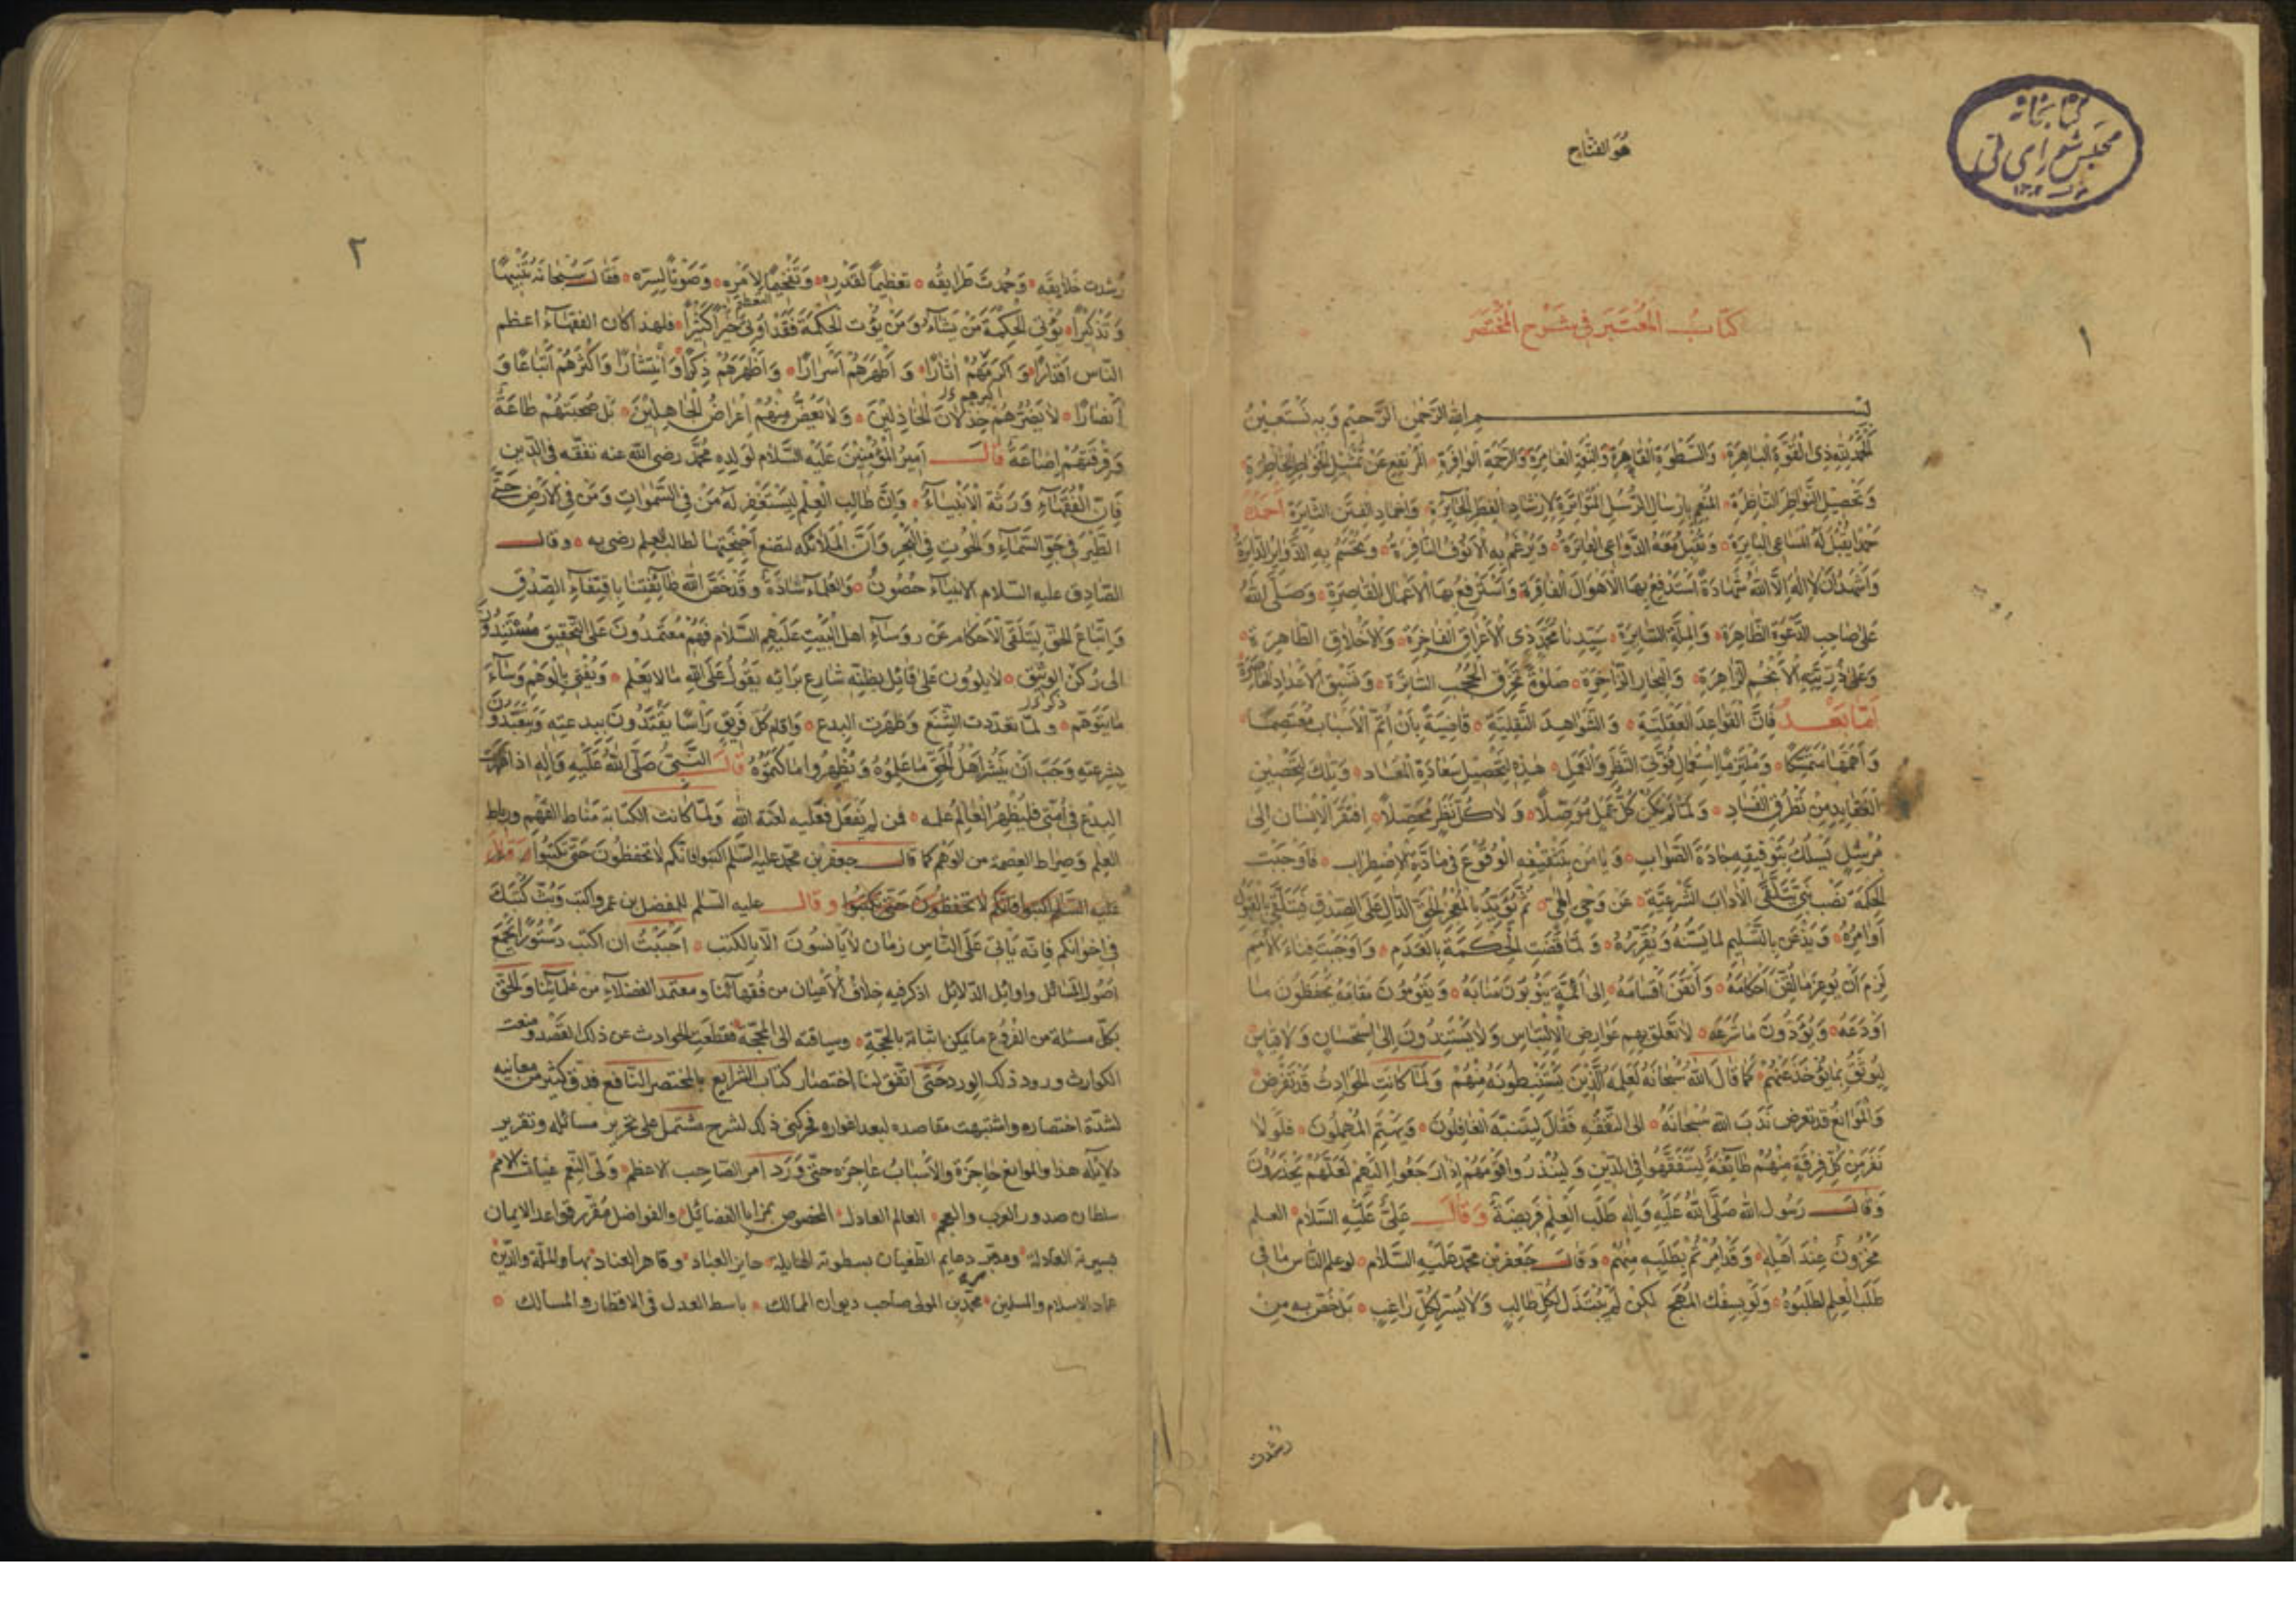 كتابخانه
مجلس شورای ملی
هو الفتاح
١
كتاب المعتبر في شرح المختصر
بسم الله الرحمن الرحيم وبه نستعين
الحمد لله ذي القوة الباهرة والسطوة القاهرة والنعمة الغامرة والرحمة الوافرة المرتفع عن تمثيل الخواطر الخاطرة
وتحصيل النواظر الناظرة المنعم بارسال الرسل المتواترة لارشاد الفطر الحائرة واخماد الفتن الثائرة احمده
حمدا يقبل له المساعي البائرة وتقبل معه الدواعي الفاترة ويرغم به الانوف النافرة ويحسم به الدوابر الدائرة
واشهد ان لا اله الا الله شهادة استدفع بها الاهوال الفاقرة واسترفع بها الاعمال القاصرة وصلى الله
على صاحب الدعوة الظاهرة والملة السائرة سيدنا محمد ذي الاعراق الفاخرة والاخلاق الطاهرة
وعلى ذريته الانجم الزاهرة والبحار الزاخرة صلوة تخرق الحجب الساترة وتسبق الاعداد الحاصرة
اما بعد فان القواعد العقلية والشواهد النقلية قاضية بان اتم الاسباب معتصما
واهمها متمسكا وملتزما استعمال قوتي النظر والعمل هذه لتحصيل سعادة المعاد وتلك لتحصين
العقايد من تطرق الفساد ولما لم يكن كل عمل موصلا ولا كل نظر محصلا افتقر الانسان الى
مرشد يسلك بتوفيقه جادة الصواب ويامن بتثقيفه الوقوع في مادة الاضطراب فاوجبت
الحكمة نصب نبي يتلقى الاداب الشرعية عن وحي الهي ثم يؤيد بالمعجز الحق الدال على الصدق فيتلقى بالقبول
اوامره ويذعن بالتسليم لما يسنه ويقرره ولما قضت الحكمة بالعدم واوجبت فناء الامم
لزم ان يوعز ما اتقن احكامه واتقن اقسامه الى ائمة ينوبون منابه ويقومون مقامه يحفظون ما
اودعه ويؤدون ما شرعه لا تعلق بهم عوارض الالتباس ولا يستندون الى استحسان ولا قياس
ليوثق بما يؤخذ عنهم كما قال الله سبحانه لعلمه الذين يستنبطونه منهم ولما كانت الحوادث قد تفرض
والموانع قد تعرض ندب الله سبحانه الى التفقه فقال ليتنبه الغافلون ويهتم المهملون فلولا
نفر من كل فرقة منهم طائفة ليتفقهوا في الدين ولينذروا قومهم اذا رجعوا اليهم لعلهم يحذرون
وقال رسول الله صلى الله عليه واله طلب العلم فريضة وقال علي عليه السلام العلم
مخزون عند اهله وقد امرتم بطلبه منهم وقال جعفر بن محمد عليه السلام لو علم الناس ما في
طلب العلم لطلبوه ولو بسفك المهج لكن لم يبتذل لكل طالب ولا يستر لكل راغب بل خص به من
رشدت
٢
رشدت خلايقه وحمدت طرايقه تعظيما لقدره وتفخيما لامره وصونا لسره فقال سبحانه تنبيها
وتذكيرا يؤتي الحكمة من يشاء ومن يؤت الحكمة فقد اوتي خيرا كثيرا فلهذا كان الفقهاء اعظم
الناس اقدارا واكرمهم اثارا واطهرهم اسرارا واظهرهم ذكرا وانتشارا واكثرهم اتباعا و
انصارا لا يضرهم خذلان الخاذلين ولا يغض منهم اعراض الجاهلين بل صحبتهم طاعة
وفرقتهم اضاعة قال امير المؤمنين عليه السلام لولده محمد رضي الله عنه تفقه في الدين
فان الفقهاء ورثة الانبياء وان طالب العلم ليستغفر له من في السموات ومن في الارض حتى
الطير في جو السماء والحوت في البحر وان الملائكة لتضع اجنحتها لطالب العلم رضى به وقال
الصادق عليه السلام الانبياء حصون والعلماء سادة وقد خص الله طائفتنا باقتفاء الصدق
واتباع الحق بتلقي الاحكام عن رؤساء اهل البيت عليهم السلام فهم معتمدون على التحقيق مستندون
الى ركن الوثيق لا يلوون على قائل بظنه شارع برائه يقول على الله ما لا يعلم ويفتي بالوهم وساء
ما يتوهم ولما تعددت الشيع وظهرت البدع واقام كل فريق راسا يقتدون ببدعته ويتعبدون
بشرعته وجب ان ينشر اهل الحق ما علموه ويظهروا ما كتموه قال النبي صلى الله عليه واله اذا ظهرت
البدع في امتي فليظهر العالم علمه فمن لم يفعل فعليه لعنة الله ولما كانت الكتابة مناط الفهم ورباط
العلم وصراط العصمة من الوهم كما قال جعفر بن محمد عليه السلم اكتبوا فانكم لا تحفظون حتى تكتبوا وقال
عليه السلم اكتبوا فانكم لا تحفظون حتى تكتبوا وقال عليه السلم للمفضل بن عمر واكتب وبث كتبك
في اخوانكم فانه ياتي على الناس زمان لا يانسون الا بالكتب احببت ان اكتب دستورا يجمع
اصول المسائل واوائل الدلائل اذكر فيه خلاف الاعيان من فقهائنا ومعتمد الفضلاء من علمائنا والحق
بكل مسئلة من الفروع ما يمكن اثباته بالحجة وسياقته الى المحجة فقطعت الحوادث عن ذلك القصد ومنعت
الكوارث ورود ذلك الورد حتى اتفق لنا اختصار كتاب الشرايع بالمختصر النافع فدق كثير من معانيه
لشدة اختصاره واشتبهت مقاصده لبعد اغواره فحركني ذلك لشرح مشتمل على تحرير مسائله وتقرير
دلايله هذا والموانع حاجزة والاسباب عاجزه حتى ورد امر الصاحب الاعظم ولي النعم غياث الامم
سلطان صدور العرب والعجم العالم العادل المخصوص بمزايا الفضائل والفواضل مقرر قواعد الايمان
بسيرته العادلة ومدمر دعايم الطغيان بسطوته الهايلة حايز العباد وقاهر العناد بهاء الملة والدين
عماد الاسلام والمسلمين محمد بن المولى صاحب ديوان الممالك باسط العدل في الاقطار والمسالك